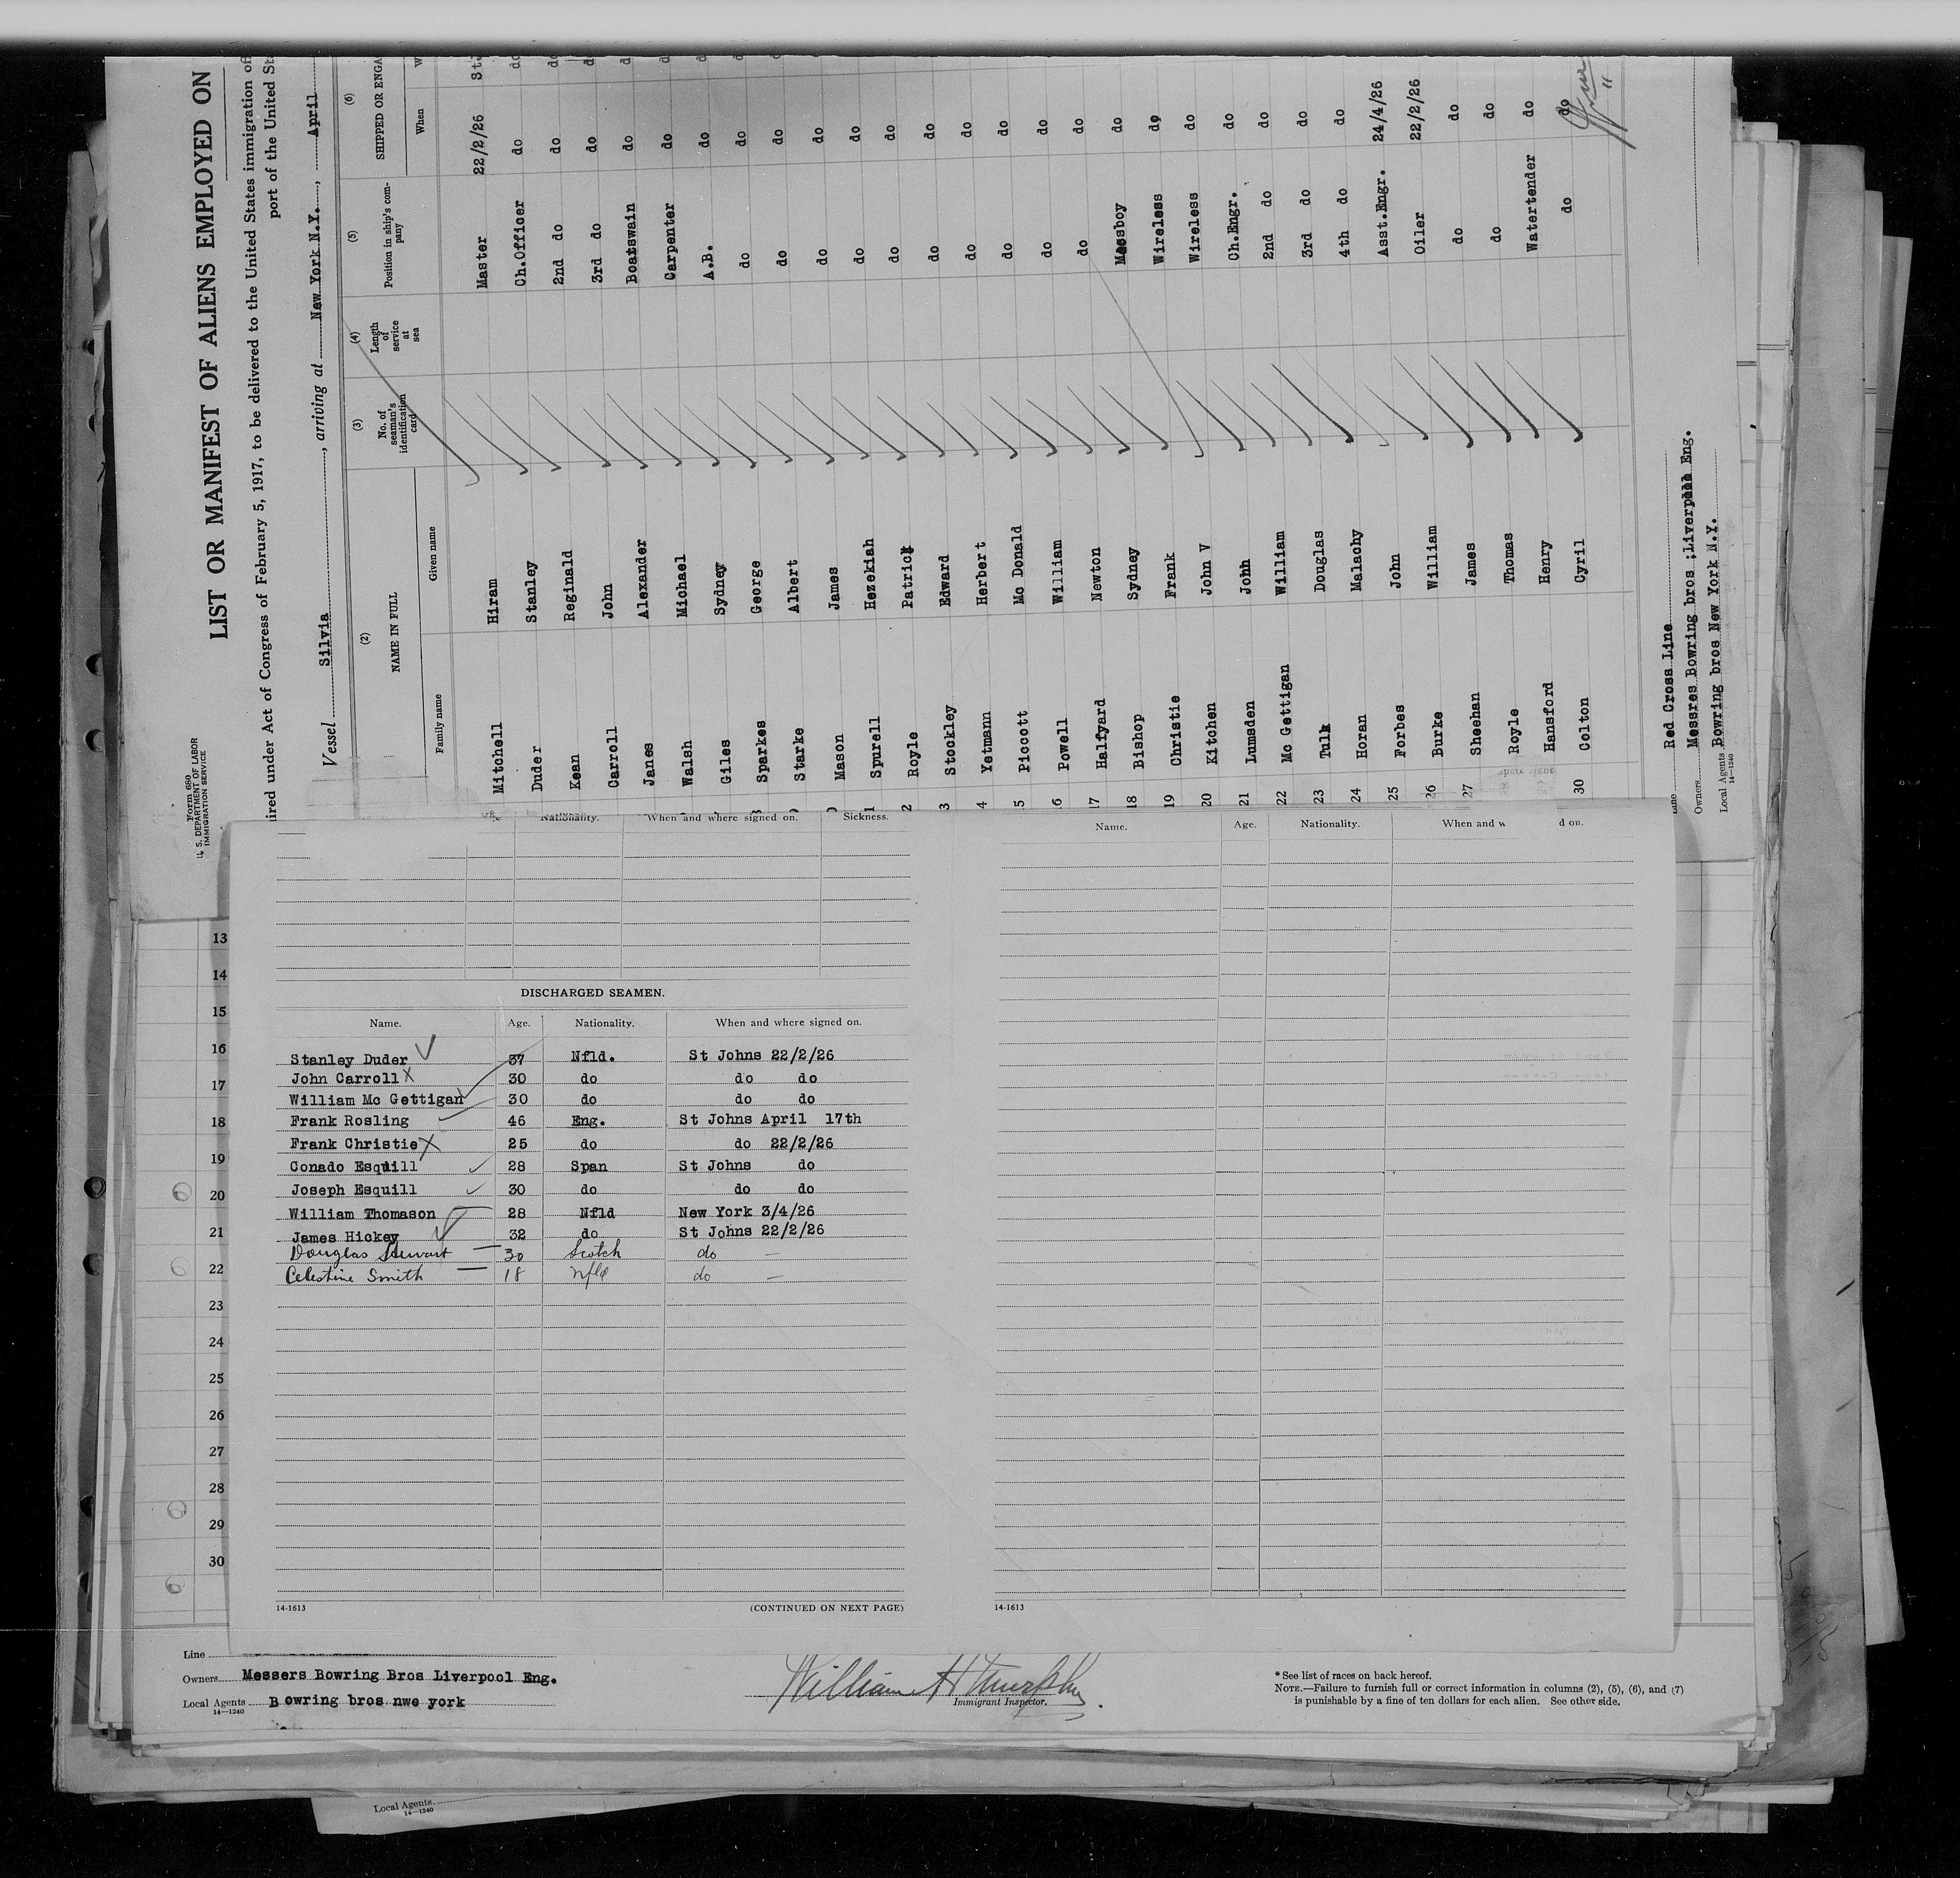 Form 680
U. S. DEPARTMENT OF LABOR
IMMIGRATION SERVICE
LIST OR MANIFEST OF ALIENS EMPLOYED ON
ired under Act of Congress of February 5, 1917, to be delivered to the United States immigration of
port of the United St
Vessel Silvia, arriving at New York N.Y., April
(2) (3) (4) (5) (6)
NAME IN FULL No. of seaman's identification card Length of service at sea Position in ship's company SHIPPED OR ENGA
Family name Given name When W
Mitchell Hiram Master 22/2/26 St
Duder Stanley Ch.Officer do do
Kean Reginald 2nd do do do
Carroll John 3rd do do do
Janes Alexander Boatswain do d
Walsh Michael Carpenter do d
Giles Sydney A.B. do d
Sparkes George do do d
Starke Albert do do
Mason James do do
1 Spurell Hezekiah do do
2 Royle Patrick do do
3 Stockley Edward do do
4 Yetmann Herbert do do
5 Piccott Mc Donald do do
16 Powell William do do
17 Halfyard Newton do do
18 Bishop Sydney Messboy do
19 Christie Frank Wireless do
20 Kitchen John V Wireless do
21 Lumsden John Ch.Engr. do
22 Mc Gettigan William 2nd do do
23 Tulk Douglas 3rd do do
24 Horan Malachy 4th do do
25 Forbes John Asst.Engr. 24/4/26
26 Burke William Oiler 22/2/26
27 Sheehan James do do
Royle Thomas do do
Hansford Henry Watertender do
30 Colton Cyril do do
Line Red Cross Line
Owners Messres Bowring bros ;Liverp Eng.
Local Agents Bowring bros New York N.Y.
14—1240
Nationality. When and where signed on. Sickness.
Name. Age. Nationality. When and w d on.
DISCHARGED SEAMEN.
Name. Age. Nationality. When and where signed on.
Stanley Duder 37 Nfld. St Johns 22/2/26
John Carroll 30 do do do
William Mc Gettigan 30 do do do
Frank Rosling 46 Eng. St Johns April 17th
Frank Christie 25 do do 22/2/26
Conado Esquill 28 Span St Johns do
Joseph Esquill 30 do do do
William Thomason 28 Nfld New York 3/4/26
James Hickey 32 do St Johns 22/2/26
Douglas Stewart — 30 Scotch do —
Celestine Smith — 18 Nfld do —
14-1613 (CONTINUED ON NEXT PAGE) 14-1613
13
14
15
16
17
18
19
20
21
22
23
24
25
26
27
28
29
30
Line
Owners Messers Bowring Bros Liverpool Eng.
Local Agents Bowring bros nwe york
14—1240
William H Murphy
Immigrant Inspector.
* See list of races on back hereof.
NOTE.—Failure to furnish full or correct information in columns (2), (5), (6), and (7)
is punishable by a fine of ten dollars for each alien. See other side.
Local Agents
14—1240